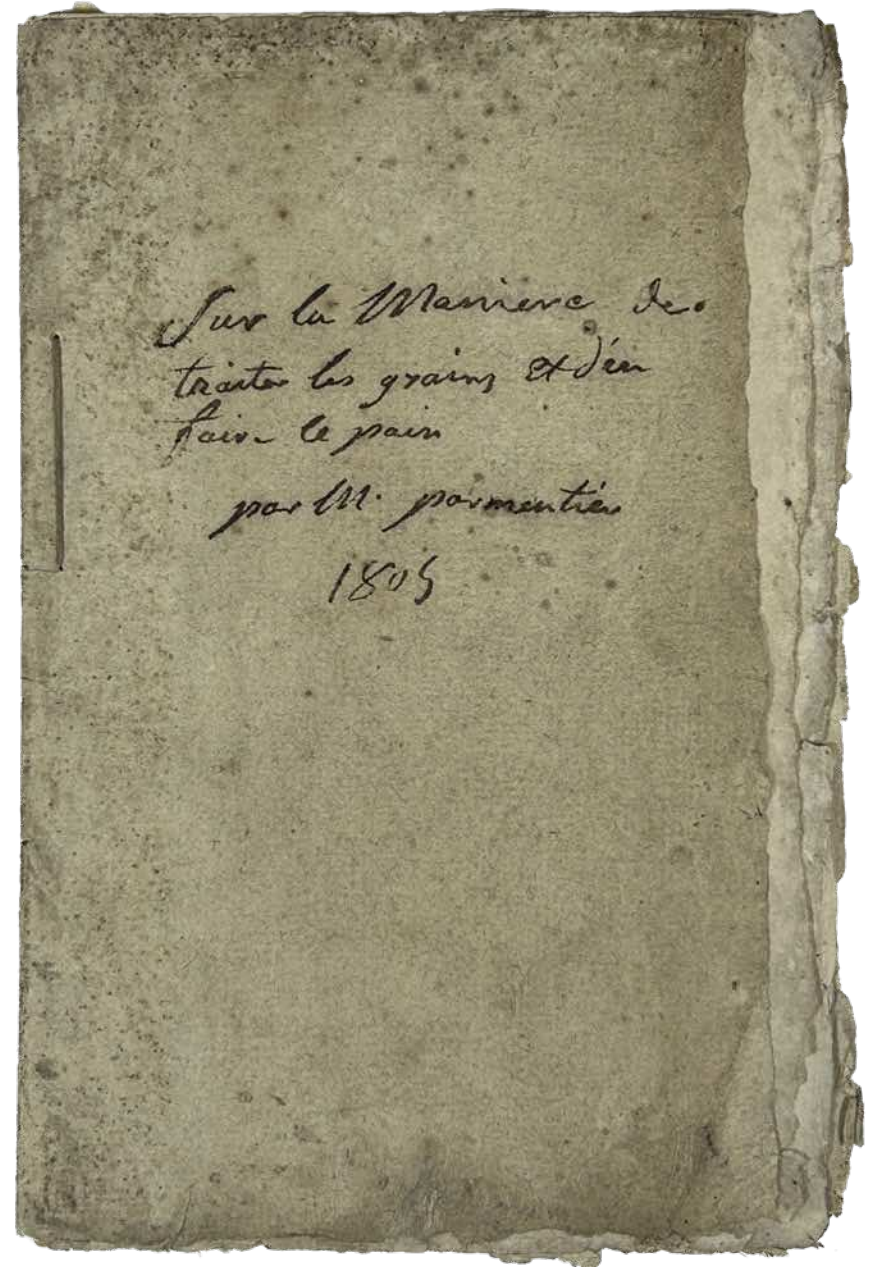 Sur la Maniere de
traiter les grains et d'én
faire le pain
par M. parmentiér
1805